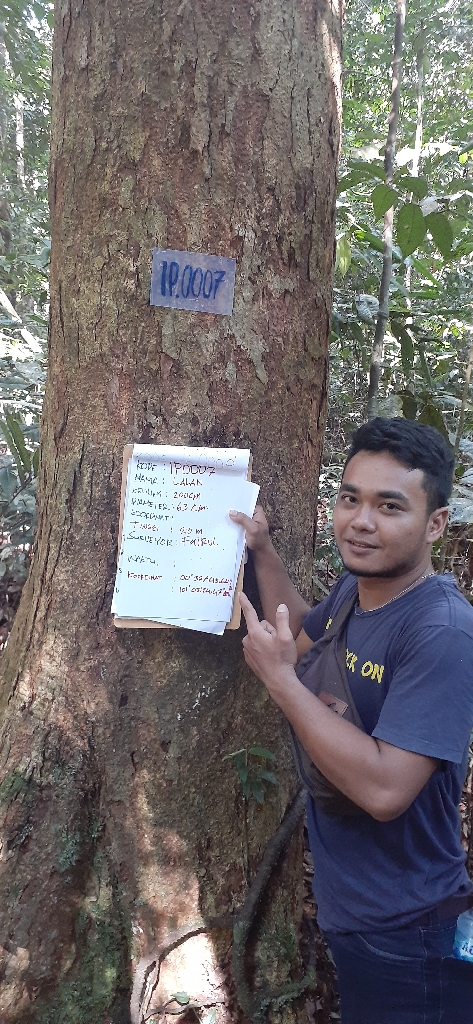 IP.0007
KODE : IP0007
NAMA : LALAN
KELILING : 200 cm
DIAMETER : 63 Cm
KOORDINAT :
TINGGI :
SURVEYOR : FAIRUL
WAKTU :
KOORDINAT :
ON